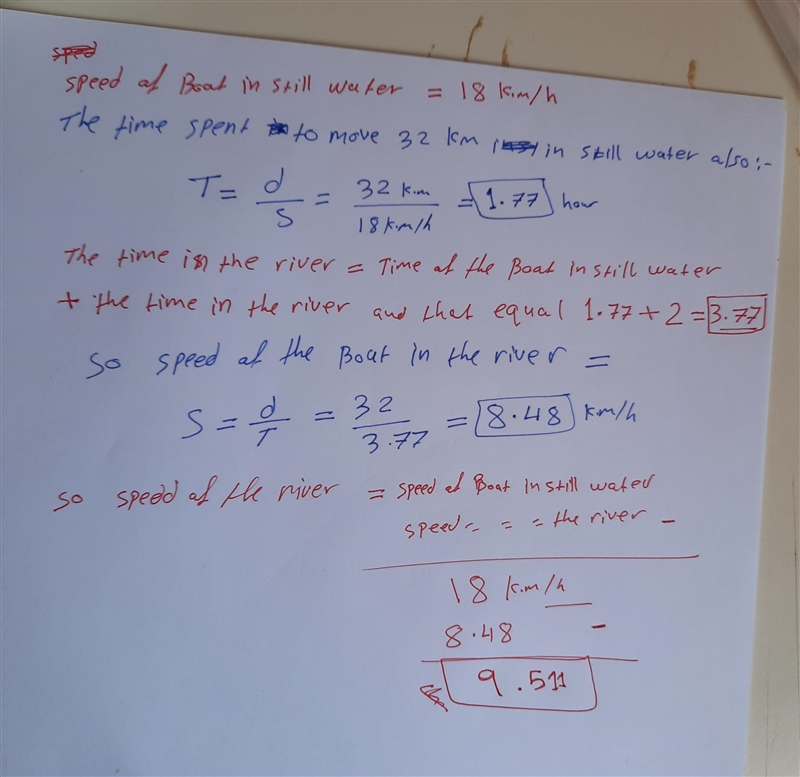 speed of Boat in still water = 18 k.m/h
The time spent to move 32 km in still water also:-
T = d/S = 32 k.m/18 k.m/h = 1.77 hour
The time in the river = Time of the Boat in still water
+ the time in the river and that equal 1.77 + 2 = 3.77
So speed of the Boat in the river =
S = d/T = 32/3.77 = 8.48 km/h
so speed of the river = speed of Boat in still water
speed = = = the river -
18 k.m/h
8.48 -
9.511